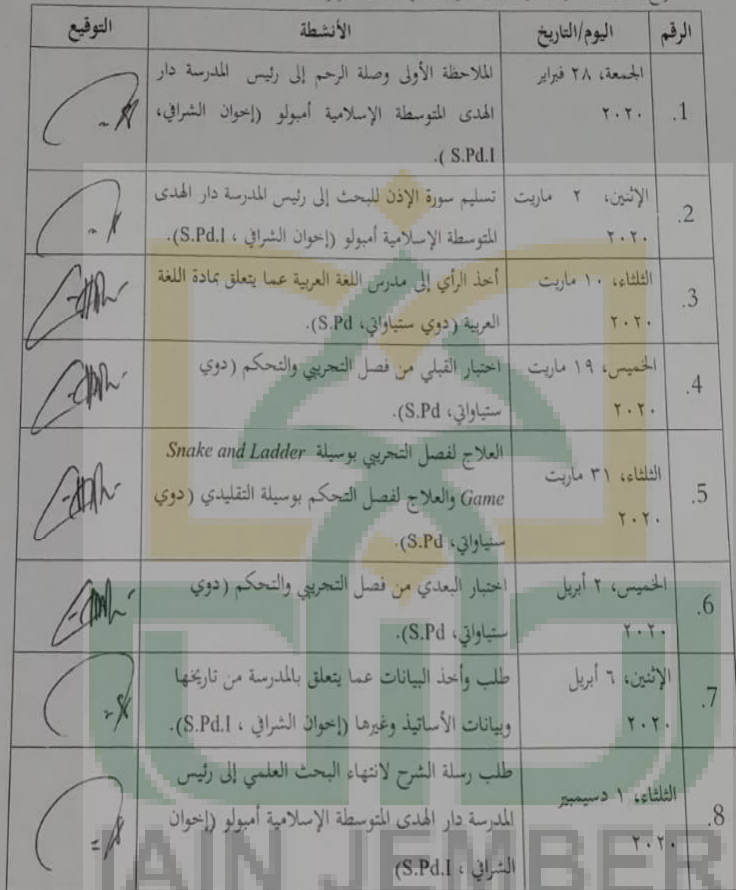 الرقم اليوم/التاريخ الأنشطة التوقيع
1. الجمعة، ٢٨ فبراير ٢٠٢٠
الملاحظة الأولى وصلة الرحم إلى رئيس المدرسة دار
الهدى المتوسطة الإسلامية أمبولو (إخوان الشرافي،
S.Pd.I ).
2. الإثنين، ٢ ماريت ٢٠٢٠
تسليم سورة الإذن للبحث إلى رئيس المدرسة دار الهدى
المتوسطة الإسلامية أمبولو (إخوان الشرافي ، S.Pd.I).
3. الثلثاء، ١٠ ماريت ٢٠٢٠
أخذ الرأي إلى مدرس اللغة العربية عما يتعلق بمادة اللغة
العربية (دوي ستياواتي، S.Pd).
4. الخميس، ١٩ ماريت ٢٠٢٠
اختبار القبلي من فصل التجريبي والتحكم (دوي
ستياواتي، S.Pd).
5. الثلثاء، ٣١ ماريت ٢٠٢٠
العلاج لفصل التجريبي بوسيلة Snake and Ladder
Game والعلاج لفصل التحكم بوسيلة التقليدي (دوي
ستياواتي، S.Pd).
6. الخميس، ٢ أبريل ٢٠٢٠
اختبار البعدي من فصل التجريبي والتحكم (دوي
ستياواتي، S.Pd).
7. الإثنين، ٦ أبريل ٢٠٢٠
طلب وأخذ البيانات عما يتعلق بالمدرسة من تاريخها
وبيانات الأساتيذ وغيرها (إخوان الشرافي ، S.Pd.I).
8. الثلثاء، ١ دسيمبير ٢٠٢٠
طلب رسلة الشرح لانتهاء البحث العلمي إلى رئيس
المدرسة دار الهدى المتوسطة الإسلامية أمبولو (إخوان
الشرافي ، S.Pd.I)
IAIN JEMBER